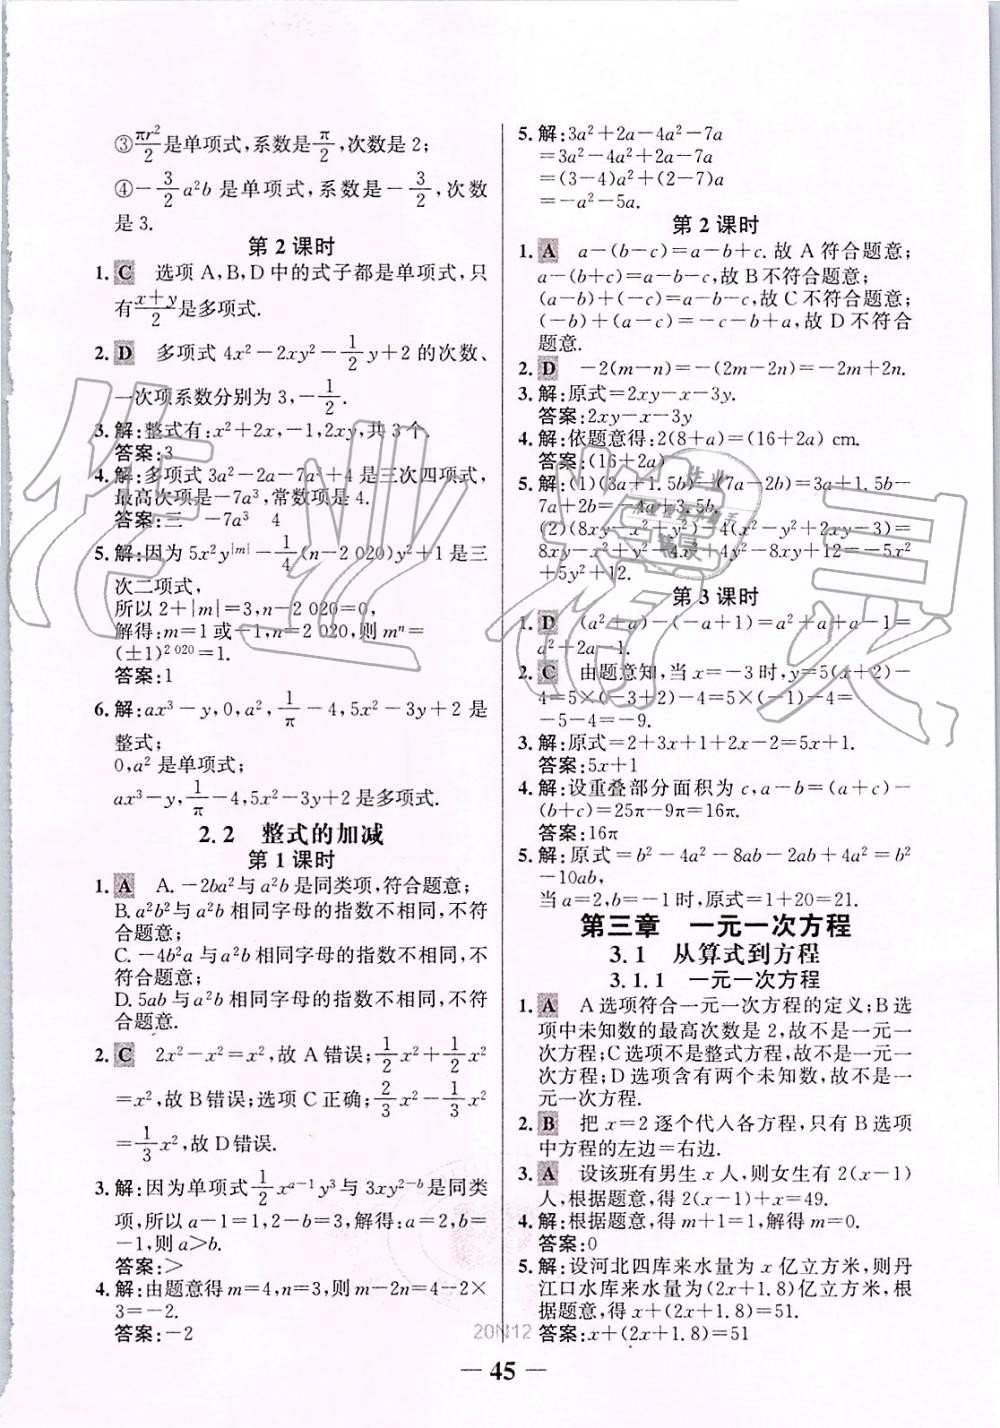 ③πr²/2是单项式,系数是π/2,次数是2;
④-3/2a²b 是单项式,系数是-3/2,次数
是3.
第2课时
1. C 选项A,B,D中的式子都是单项式,只
有x+y/2是多项式.
2. D 多项式4x²-2xy²-1/2y+2的次数、
一次项系数分别为3,-1/2.
3. 解:整式有:x²+2x,-1,2xy,共3个.
答案:3
4. 解:多项式3a²-2a-7a³+4是三次四项式,
最高次项是-7a³,常数项是4.
答案:三 -7a³ 4
5. 解:因为5x²y^|m|-1/4(n-2 020)y²+1是三
次二项式,
所以2+|m|=3,n-2 020=0,
解得:m=1或-1,n=2 020,则mⁿ=
(±1)^2 020=1.
答案:1
6. 解:ax³-y,0,a²,1/π-4,5x²-3y+2是
整式;
0,a²是单项式;
ax³-y,1/π-4,5x²-3y+2是多项式.
2.2 整式的加减
第1课时
1. A A.-2ba²与a²b是同类项,符合题意;
B.a²b²与a²b相同字母的指数不相同,不符
合题意;
C.-4b²a与a²b相同字母的指数不相同,不
符合题意;
D.5ab与a²b相同字母的指数不相同,不符
合题意.
2. C 2x²-x²=x²,故A错误;1/2x²+1/2x²
=x²,故B错误;选项C正确;2/3x²-1/3x²
=1/3x²,故D错误.
3. 解:因为单项式1/2x^a-1y³与3xy^2-b是同类
项,所以a-1=1,2-b=3,解得:a=2,b=
-1,则a>b.
答案:>
4. 解:由题意得m=4,n=3,则m-2n=4-2×
3=-2.
答案:-2
5. 解:3a²+2a-4a²-7a
=3a²-4a²+2a-7a
=(3-4)a²+(2-7)a
=-a²-5a.
第2课时
1. A a-(b-c)=a-b+c.故A符合题意;
a-(b+c)=a-b-c,故B不符合题意;
(a-b)+(-c)=a-b-c,故C不符合题意;
(-b)+(a-c)=-c-b+a,故D不符合
题意.
2. D -2(m-n)=-(2m-2n)=-2m+2n.
3. 解:原式=2xy-x-3y.
答案:2xy-x-3y
4. 解:依题意得:2(8+a)=(16+2a) cm.
答案:(16+2a)
5. 解:(1)(3a+1.5b)-(7a-2b)=3a+1.5b-
7a+2b=-4a+3.5b.
(2)(8xy-x²+y²)-4(x²-y²+2xy-3)=
8xy-x²+y²-4x²+4y²-8xy+12=-5x²
+5y²+12.
第3课时
1. D (a²+a)-(-a+1)=a²+a+a-1=
a²+2a-1.
2. C 由题意知,当x=-3时,y=5(x+2)-
4=5×(-3+2)-4=5×(-1)-4=
-5-4=-9.
3. 解:原式=2+3x+1+2x-2=5x+1.
答案:5x+1
4. 解:设重叠部分面积为c,a-b=(a+c)-
(b+c)=25π-9π=16π.
答案:16π
5. 解:原式=b²-4a²-8ab-2ab+4a²=b²
-10ab,
当a=2,b=-1时,原式=1+20=21.
第三章 一元一次方程
3.1 从算式到方程
3.1.1 一元一次方程
1. A A选项符合一元一次方程的定义;B选
项中未知数的最高次数是2,故不是一元一
次方程;C选项不是整式方程,故不是一元一
次方程;D选项含有两个未知数,故不是一
元一次方程.
2. B 把x=2逐个代入各方程,只有B选项
中方程的左边=右边.
3. A 设该班有男生x人,则女生有2(x-1)
人,根据题意,得2(x-1)+x=49.
4. 解:根据题意,得m+1=1,解得m=0.
答案:0
5. 解:设河北四库来水量为x亿立方米,则丹
江口水库来水量为(2x+1.8)亿立方米,根
据题意,得x+(2x+1.8)=51.
答案:x+(2x+1.8)=51
20N12
— 45 —
作业精灵